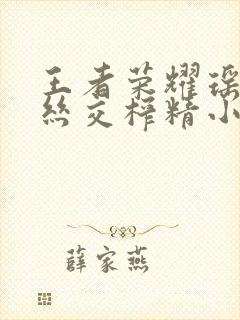 王者荣耀瑶
丝交榨精小
薛家燕